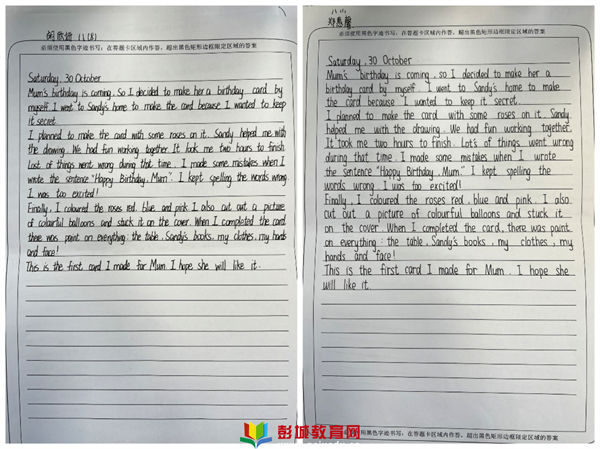 必须使用黑色字迹书写,在答题卡区域内作答,超出黑色矩形边框限定区域的答案
Saturday, 30 October
Mum's birthday is coming, so I decided to make her a birthday card by
myself. I went to Sandy's home to make the card because I wanted to keep
it secret.
I planned to make the card with some roses on it. Sandy helped me with
the drawing. We had fun working together. It took me two hours to finish.
Lost of things went wrong during that time. I made some mistakes when I
wrote the sentence "Happy Birthday, Mum". I kept spelling the words wrong.
I was too excited!
Finally, I coloured the roses red, blue and pink. I also cut out a picture
of colourful balloons and stuck it on the cover. When I completed the card,
there was paint on everything: the table, Sandy's books, my clothes, my hands
and face!
This is the first card I made for Mum. I hope she will like it.
郑惠馨
必须使用黑色字迹书写,在答题卡区域内作答,超出黑色矩形边框限定区域的答案
Saturday, 30 October
Mum's birthday is coming, so I decided to make her a
birthday card by myself. I went to Sandy's home to make
the card because I wanted to keep it secret.
I planned to make the card with some roses on it. Sandy
helped me with the drawing. We had fun working together.
It took me two hours to finish. Lots of things went wrong
during that time. I made some mistakes when I wrote
the sentence "Happy Birthday, Mum". I kept spelling the
words wrong. I was too excited!
Finally, I coloured the roses red, blue and pink. I also
cut out a picture of colourful balloons and stuck it
on the cover. When I completed the card, there was paint
on everything: the table, Sandy's books, my clothes, my
hands and face!
This is the first card I made for Mum. I hope she
will like it.
必须使用黑色字迹书写,在答题卡区域内作答,超出黑色矩形边框限定区域的答案
彭城教育网